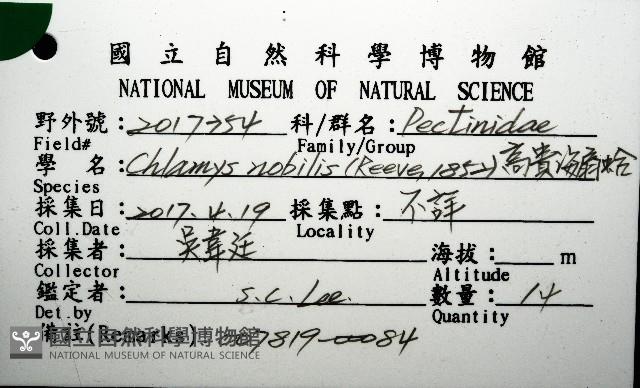 國立自然科學博物館
NATIONAL MUSEUM OF NATURAL SCIENCE
野外號：2017-54 科/群名：Pectinidae
Field# Family/Group
學 名：Chlamys nobilis (Reeve, 1852) 高貴海扇蛤
Species
採集日：2017.4.19 採集點：不詳
Coll.Date Locality
採集者：吳韋廷 海拔： m
Collector Altitude
鑑定者：S.C. Lee. 數量：14
Det.by Quantity
備註(Remarks) 7819-00084
國立自然科學博物館
NATIONAL MUSEUM OF NATURAL SCIENCE